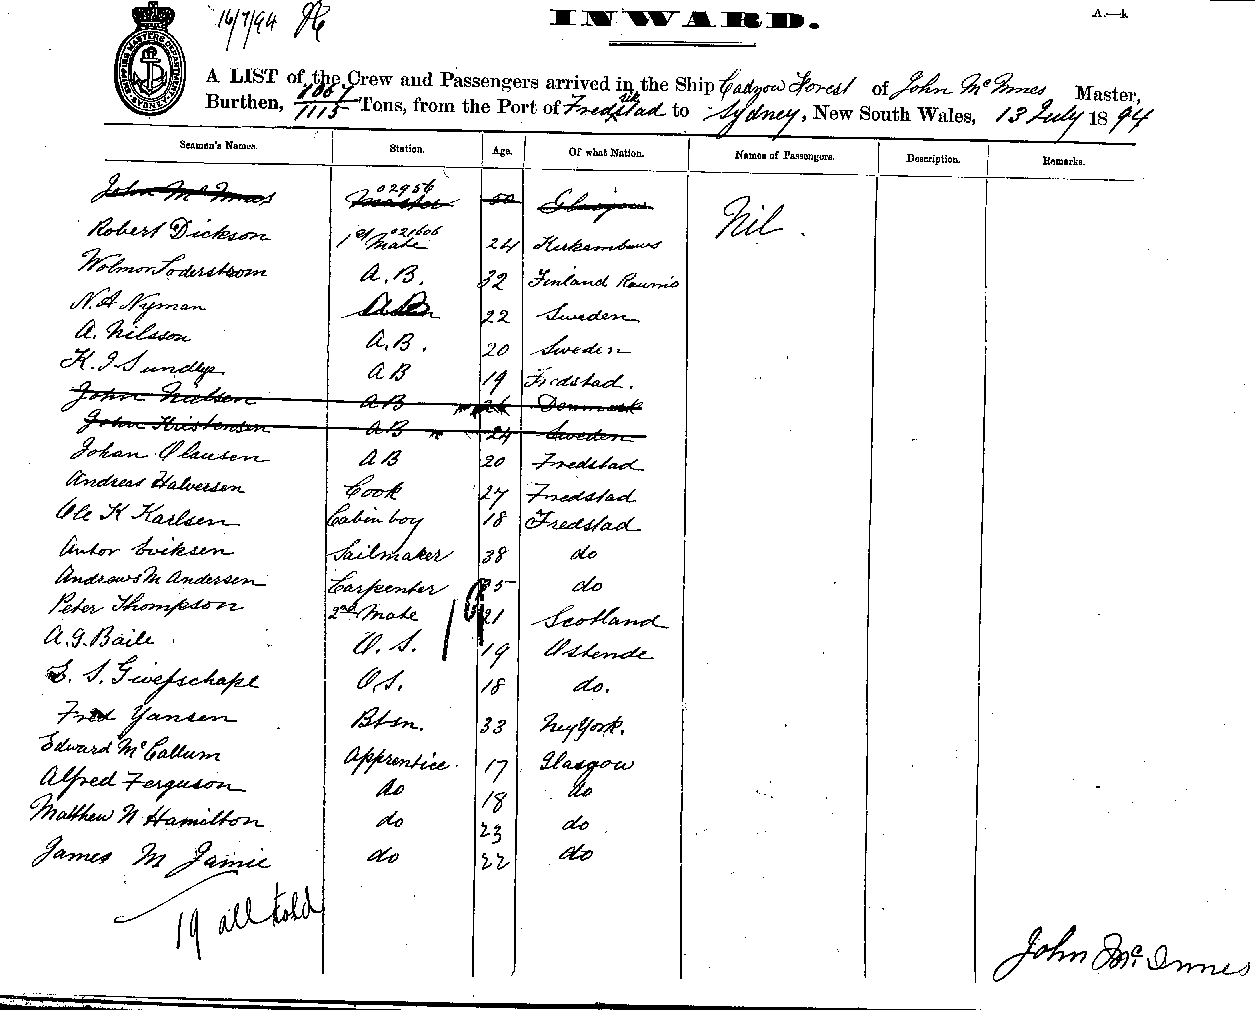 16/7/94
INWARD.
A.—k
SHIPPING MASTERS DEPARTMENT SYDNEY
A LIST of the Crew and Passengers arrived in the Ship Cadzow Forest of John McInnes Master,
Burthen, 1067/1115 Tons, from the Port of Fredrikstad to Sydney, New South Wales, 13 July 1894
Seamen's Names. Station. Age. Of what Nation. Names of Passengers. Description. Remarks.
02956
John McInnes Master 50 Glasgow Nil.
021606
Robert Dickson 1st Mate 24
Soderstrom A.B. 32 Finland Raumo
N. A Nyman 22 Sweden
A. Nilsson A.B. 20 Sweden
K. J AB 19 Fredstad.
John Nielsen AB 26 Denmark
John Kristensen AB 24 Sweden
Johan Olausen AB 20 Fredstad
Andreas Halversen Cook 27 Fredstad
Ole K Karlsen Cabin boy 18 Fredstad
Anton Eriksen Sailmaker 38 do
Andrews M Andersen Carpenter 35 do
Peter Thompson 2nd Mate 21 Scotland
19
A. G. Baile O. S. 19 Ostende
S. O.S. 18 do.
Fred Yansen Btsn. 33 Ney York.
Edward McCallum Apprentice. 17 Glasgow
Alfred Ferguson do 18 do
Matthew N Hamilton do 23 do
James M Jamie do 22 do
19 all told
John McInnes